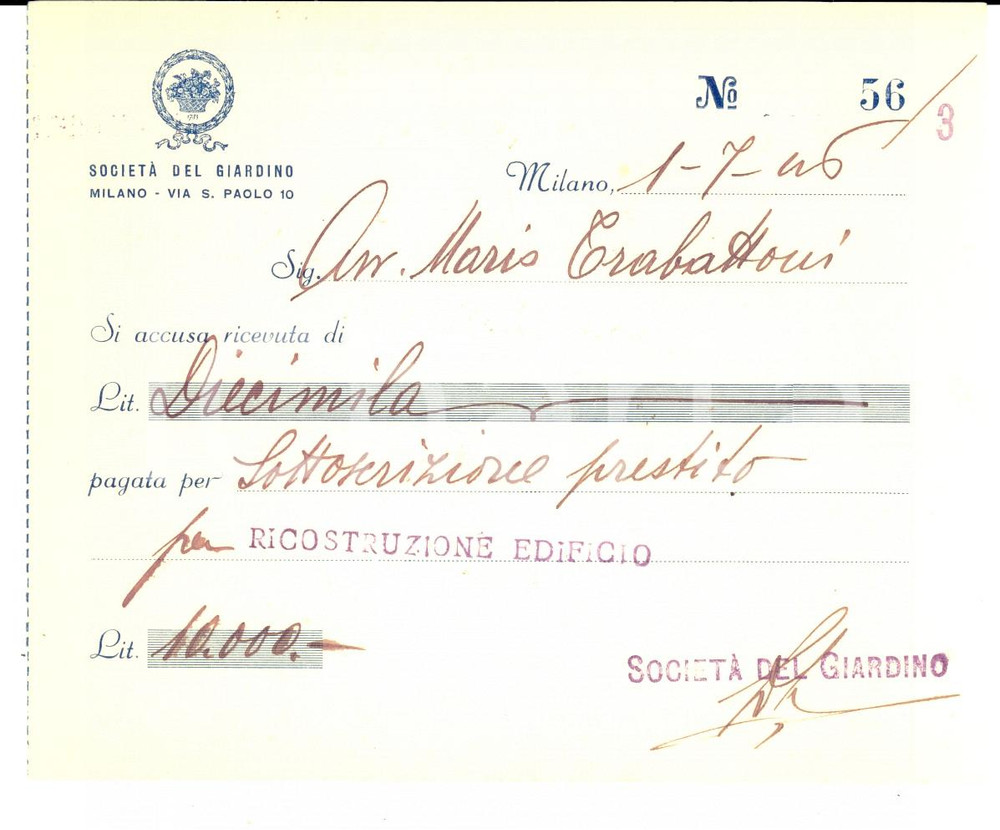 SOCIETÀ DEL GIARDINO
MILANO - VIA S. PAOLO 10
№ 56/3
Milano, 1-7-46
Sig. Avv. Mario Trabattoni
Si accusa ricevuta di
Lit. Diecimila
pagata per Sottoscrizione prestito
per RICOSTRUZIONE EDIFICIO
Lit. 10.000.-
SOCIETÀ DEL GIARDINO